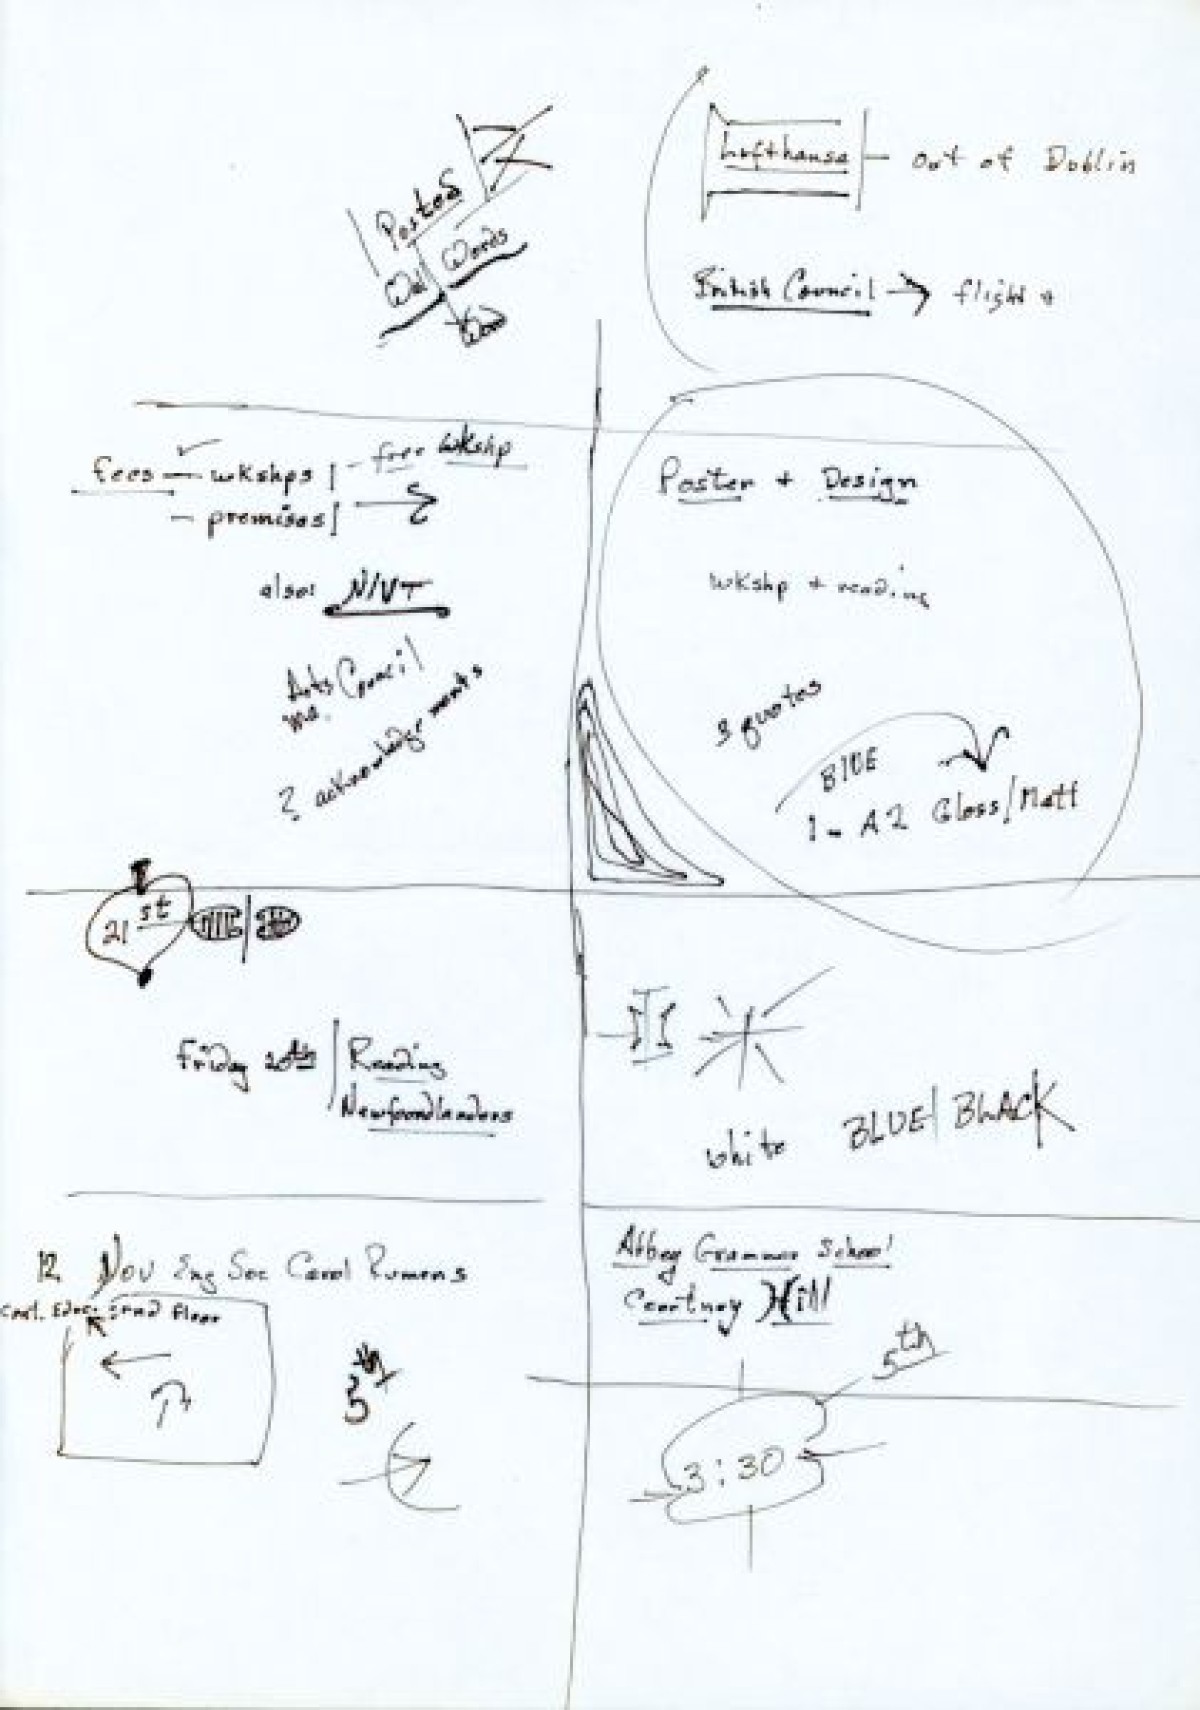 Posted
Words
Lofthouse — out of Dublin
British Council → flight +
fees — wkshps | - free wkshp
- premises |
also: N/VT
Arts Council
? acknowledgements
Poster + Design
wkshp + reading
3 quotes
BLUE
1 - A2 Gloss/Matt
21st
Friday 20th | Reading
Newfoundlanders
white BLUE/BLACK
12 Nov Eng Soc Carol Rumens
floor
5th
Abbey Grammar School
Courtney Hill
5th
3:30